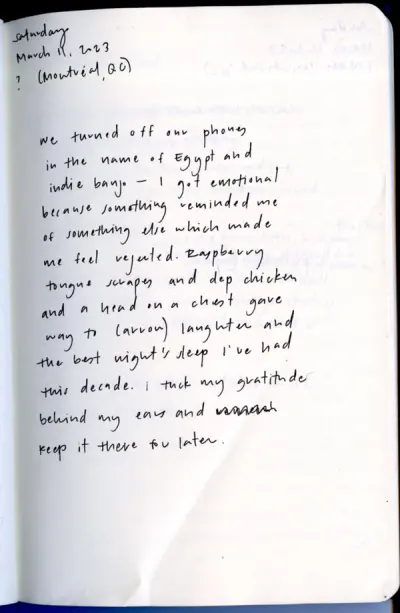 Saturday
March 11, 2023
? (Montréal, QC)
we turned off our phones
in the name of Egypt and
indie banjo – I got emotional
because something reminded me
of something else which made
me feel rejected. Raspberry
tongue scrapes and dep chicken
and a head on a chest gave
way to (arrow) laughter and
the best night's sleep I've had
this decade. I tuck my gratitude
behind my ears and
keep it there for later.